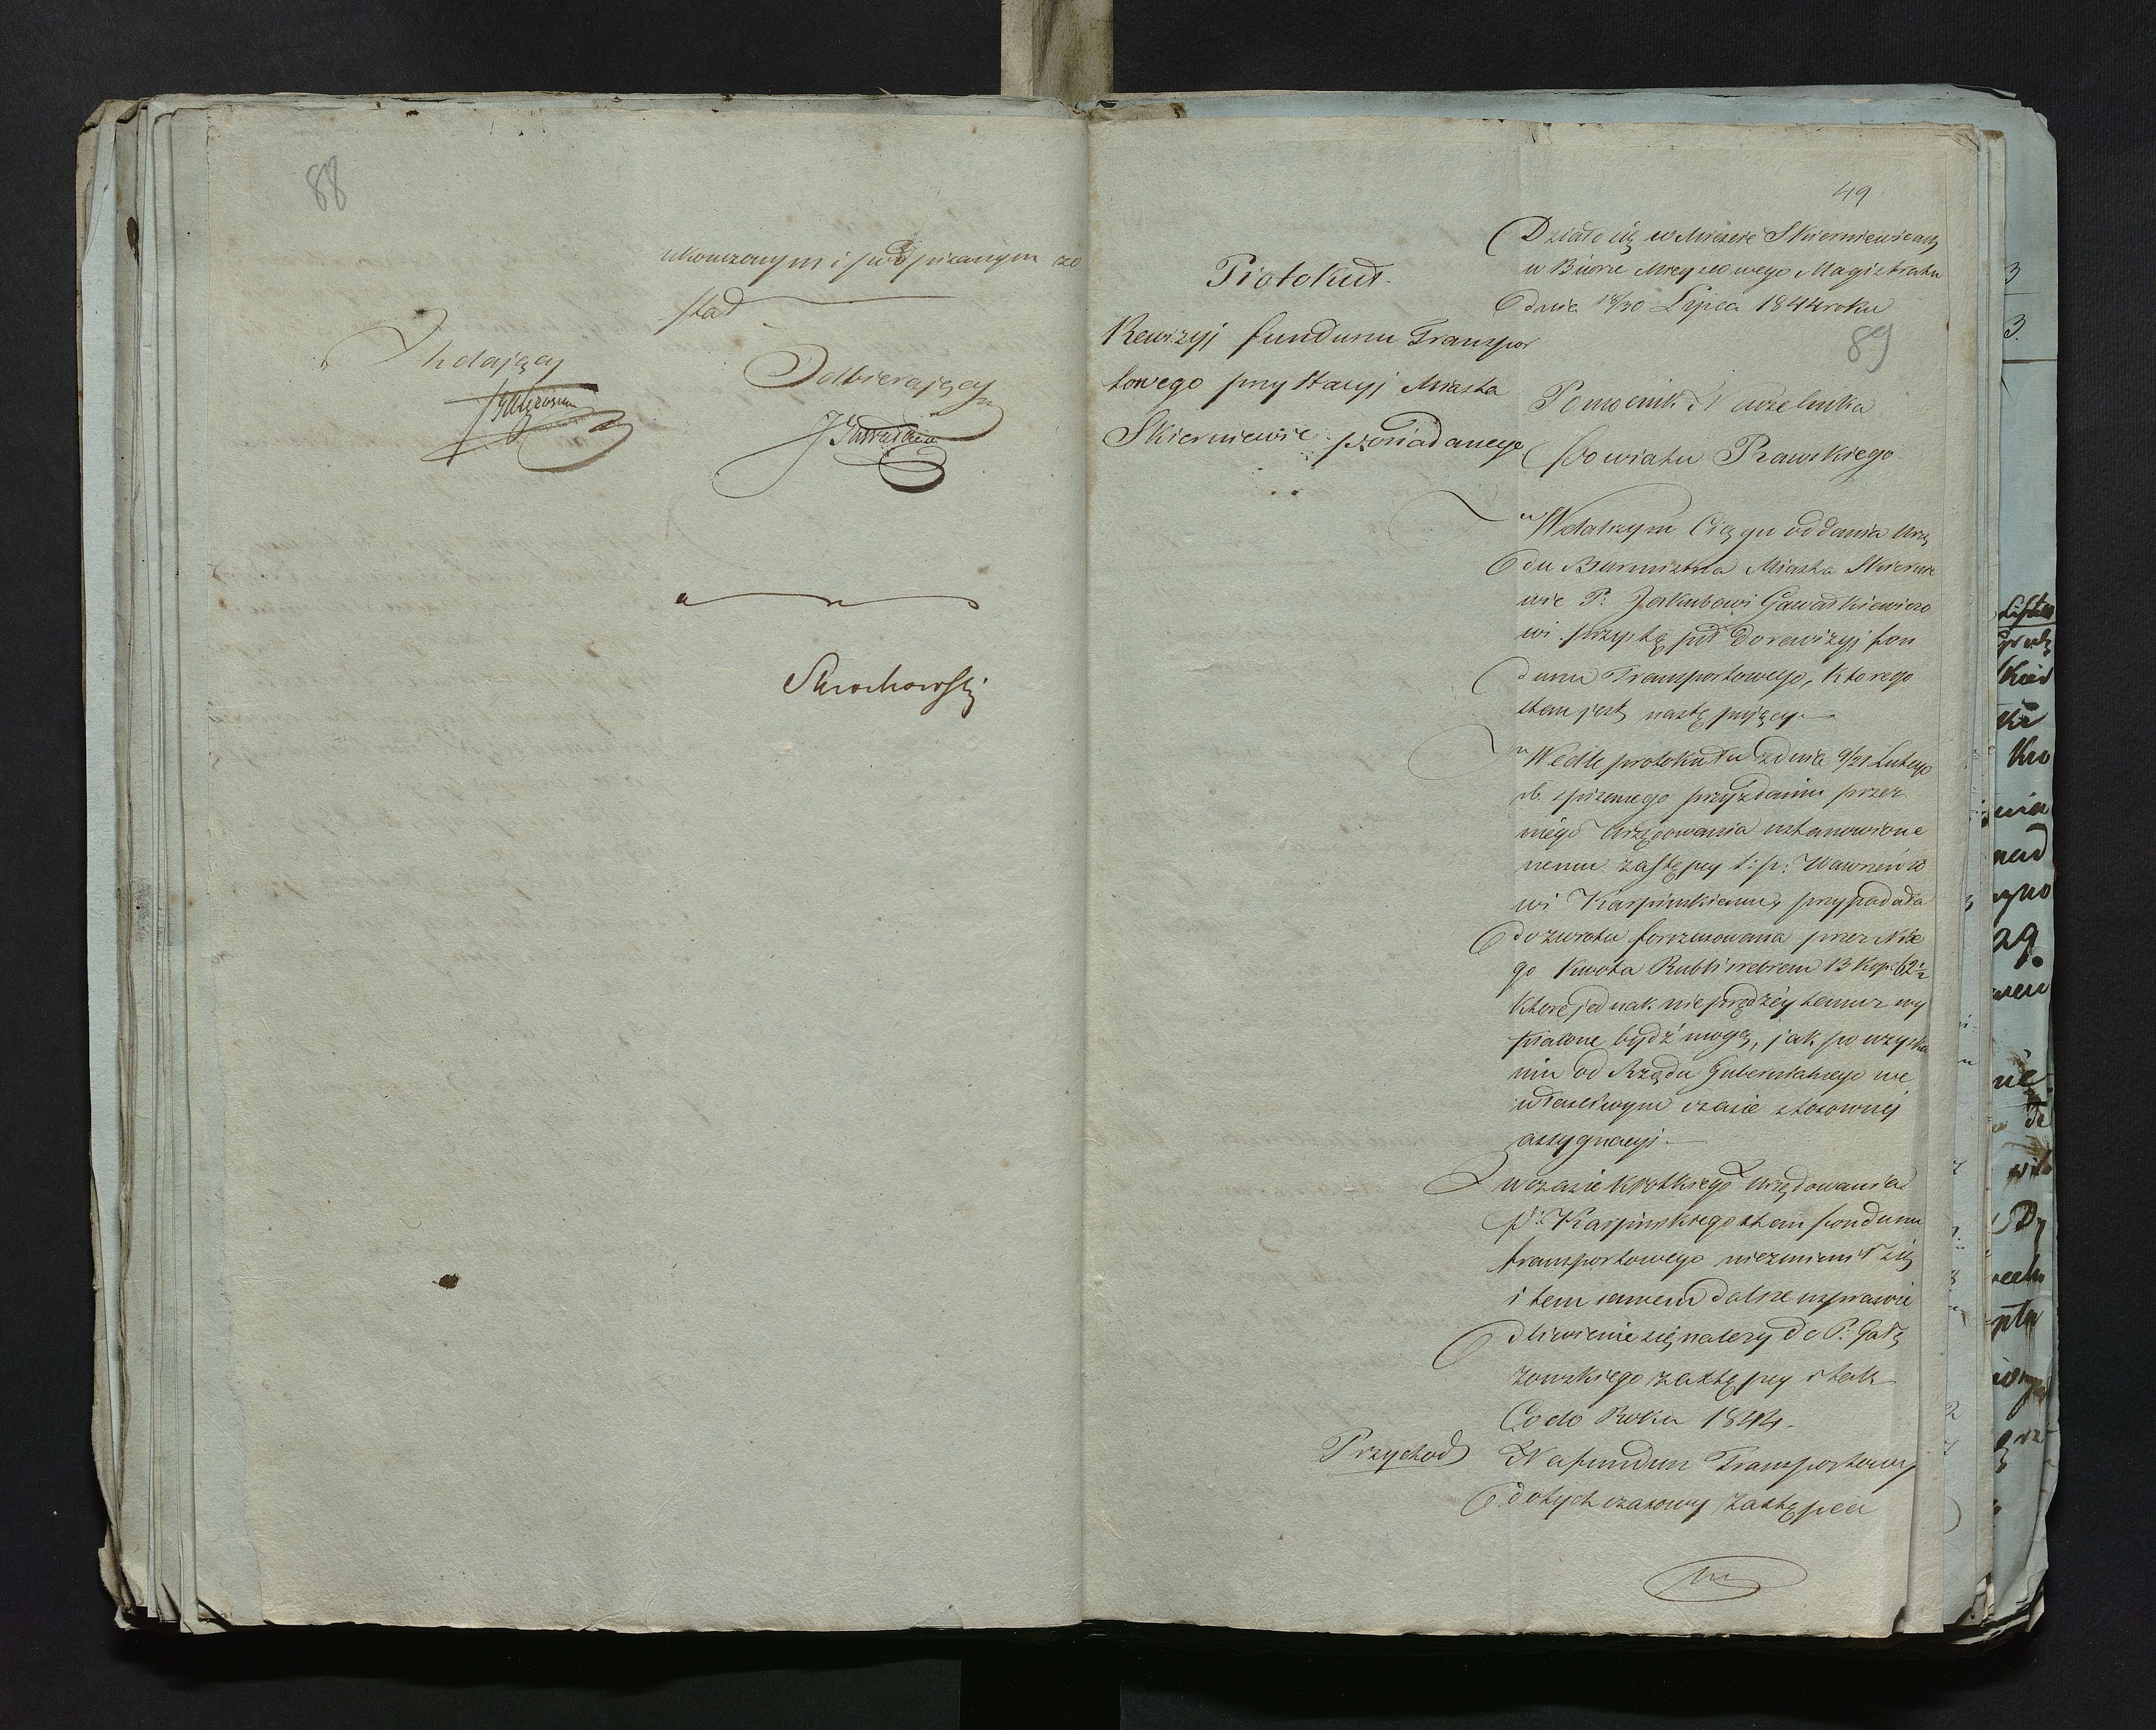 88
ukonczonym i podpisanym zo
stał
Zdający
Odbierający
49
89
Protokuł.
Rewizyi funduszu Transpor
towego przy Stacyi Miasta
Skierniewic posiadanego
Działo się w Mieście Skierniewicach
w Biurze Mieyscowego Magistratu
dnia 18/30 Lipca 1844 roku
Pomocnik Naczelnika
Powiatu Rawskiego
W dalszym Ciągu oddania Urzę
du Burmistrza Miasta Skiernie
wic P: Jakubowi Gawaskiewiczo
wi przystąpił do rewizyi fon
duszu Transportowego, ktorego
stan jest następujący
Wedle protokułu z dnia 9/21 Lutego
rb. spisanego przy zdaniu przez
niego Urzędowania ustanowione
nemu zastępcy t: p: Wawrzeńco
wi Karpinskiemu, przypadała
do zwrotu forszusowana przez Nie
go kwota Rubli srebrem 13 kop: 62½
ktore jednak nieprędzéy temuż wy
płacone bydź mogą, jak po uzyska
niu od Rządu Gubernialnego we
właściwym czasie stosownéj
assygnacyi.
W czasie krotkiego Urzędowania
P: Karpinskiego stan fonduszu
transportowego niezmienił się
i tem samem dalsze usprawie
dliwienie się należy do P: Gałę
zowskiego zastępcy i tak
Co do Roku 1844.
Przychod
Na fundusz Transportowy
dotychczasowy Zastępca